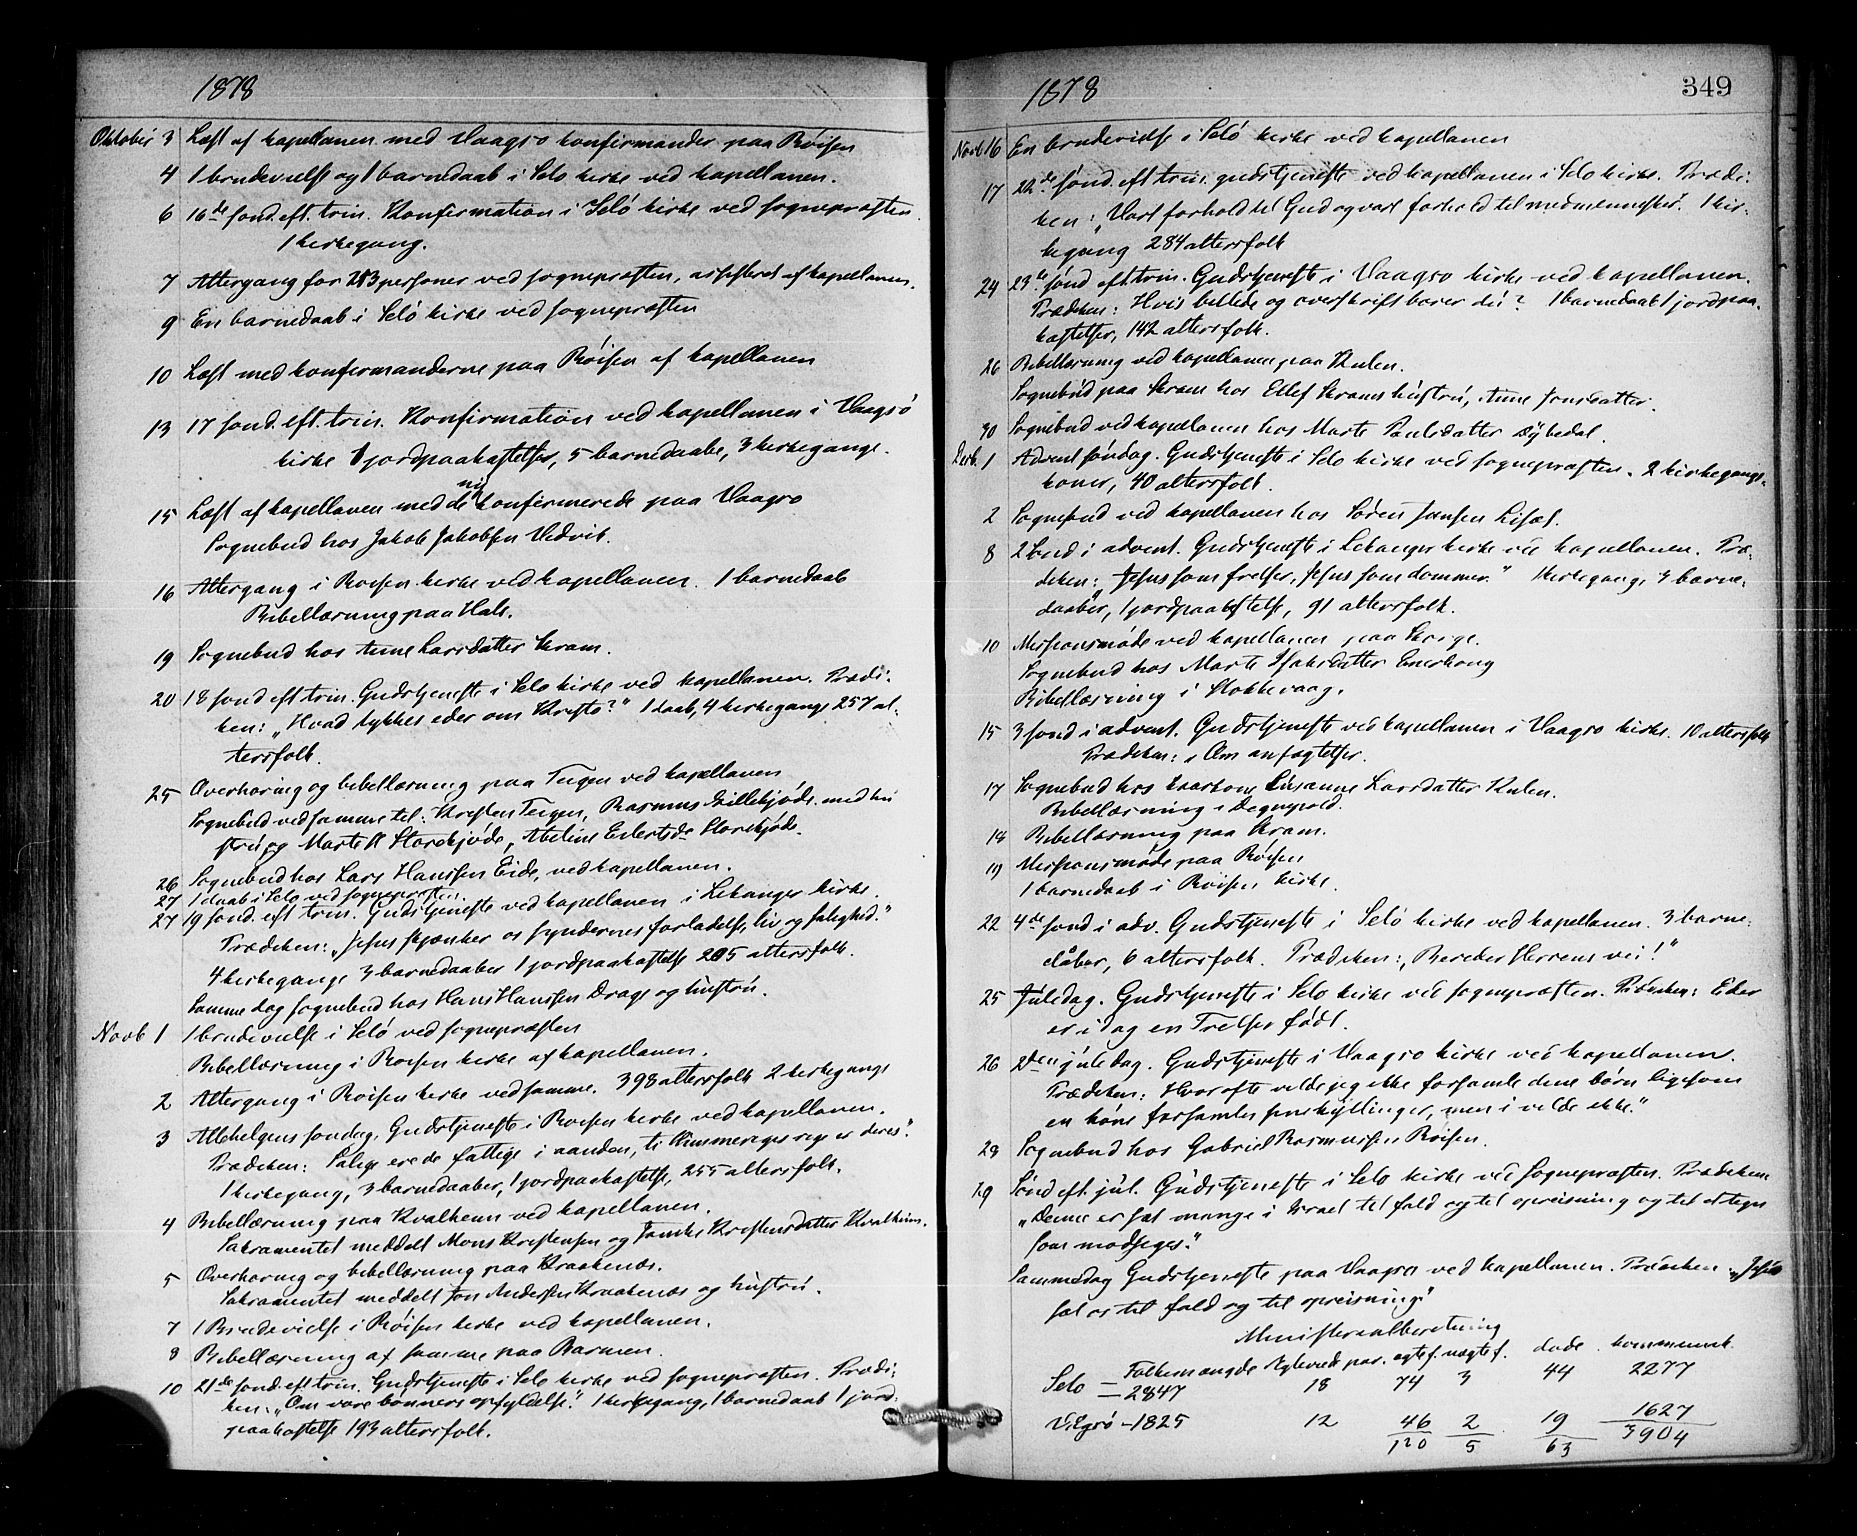 1878
Oktober 3 Læst af kapellanen med Vaagsø konfirmander paa Röisen
4 1 brudevielse og 1 barnedaab i Selo kirke ved kapellanen.
6 16de sond. eft. trin. Konfirmation i Selö kirke ved sognepræsten.
1 kirkegang.
7 Altergang for 213 personer ved sognepræsten, assisteret af kapellanen.
9 En barnedaab i Selö kirke ved sognepræsten
10 Læst med konfirmanderne paa Röisen af kapellanen
13 17 sond. eft. trin. Konfirmation ved kapellanen i Vaagsö
kirke 1 jordpaakastelse, 5 barnedaabe, 3 kirkegange.
15 Læst af kapellanen med de ny konfirmerede paa Vaagso
Sognebud hos Jakob Jakobsen Vedvik.
16 Altergang i Roisen kirke ved kapellanen. 1 barnedaab
Bibellæsning paa Hals.
19 Sognebud hos Anne Larsdatter Kram.
20 18 sond eft trin. Gudstjeneste i Selo kirke ved kapellanen. Prædi-
ken: „Hvad tykkes eder om Kristo?" 1 daab, 4 kirkegange 257 al-
tersfolk.
25 Overhøring og bibellæsning paa Teigen ved kapellanen
Sognebud ved samme til: Kresten Teigen, Rasmus Lillekjøde med hu
stru og Marte Storekjøde, Abeline Eilertsdr Storekjøde.
26 Sognebud hos Lars Hanssen Eide, ved kapellanen.
27 1 daab i Selo ved sognepræsten.
27 19 sond. eft trin. Gudstjeneste ved kapellanen i Lekanger kirke.
Prædiken: „Jesus skjænker os syndernes forladelse, liv og salighed."
4 kirkegange 3 barnedaaber 1 jordpaakastelse 205 altersfolk.
Samme dag sognebud hos Hans Hanssen Drage og hustru.
Novb 1 1 brudevielse i Selö ved sognepræsten
Bibellæsning i Roisen kirke af kapellanen.
2 Altergang i Roisen kirke ved samme. 398 altersfolk 2 kirkegange
3 Allehelgens sondag. Gudstjeneste i Roisen kirke ved kapellanen.
Prædiken: Salige ere de fattige i aanden, ti himmeriges rige er deres".
1 kirkegang, 3 barnedaaber, 1 jordpaakastelse, 255 altersfolk.
4 Bibellæsning paa Kvalheim ved kapellanen.
Sakramentet meddelt Mons Kristensen og Kristensdatter Kvalheim.
5 Overhoring og bibellæsning paa Kraakenæs.
Sakramentet meddelt Jon Andersen Kraakenæs og hustru.
7 1 Brudevielse i Röisen kirke ved kapellanen.
8 Bibellæsning af samme paa Barmen.
10 21de sond. eft trin. Gudstjeneste i Selo kirke ved sognepræsten. Prædi-
ken: „Om vore bonners opfyldelse." 1 kirkegang, 1 barnedaab 1 jord-
paakastelse 193 altersfolk.
1878 349
Novb 16 En brudevielse i Selö kirke ved kapellanen
17 22de sond. eft trin. gudstjeneste ved kapellanen i Selo kirke. Prædi-
ken: „Vort forhold til Gud og vort forhold til medmennesker. 1 kir-
kegang 284 altersfolk
24 23de sond eft. trin. Gudstjeneste i Vaagso kirke ved kapellanen.
Prædiken: Hvis billede og overskrift bærer du? 1 barnedaab 1 jordpaa-
kastelse, 142 altersfolk.
26 Bibellæsning ved kapellanen paa Kulen.
Sognebud paa Kram hos Ellef Krams hustru, Anne Jonsdatter.
30 Sognebud ved kapellanen hos Marte Paulsdatter Dybedal.
Decb. 1 Advent söndag. Gudstjeneste i Selo kirke ved sognepræsten. 2 kirkegangs-
koner, 40 altersfolk.
2 Sognebud ved kapellanen hos Sören Jansen Lisæt.
8 2 sond i advent. Gudstjeneste i Lekanger kirke ved kapellanen. Præ-
diken: „Jesus som frelser, Jesus som dommer." 1 kirkegang, 3 barne-
daaber, 1 jordpaakastelse, 91 altersfolk.
10 Missionsmöde ved kapellanen paa Skorge.
Sognebud hos Marte Isaksdatter
Bibellæsning i Stokkevaag.
15 3 sond i advent. Gudstjeneste ved kapellanen i Vaagso kirke. 10 altersfolk
Prædiken: Om anfægtelser.
17 Sognebud hos Susanne Larsdatter Kulen.
Bibellæsning i Degnepold.
14 Bibellæsning paa Kram.
19 Missionsmöde paa Röisen
1 barnedaab i Röisen kirke.
22 4de sond i adv. Gudstjeneste i Selö kirke ved kapellanen. 3 barne-
dåber, 6 altersfolk. Prædiken: „Bereder Herrens vei!"
25 Juledag. Gudstjeneste i Selo kirke ved sognepræsten. Prædiken: Eder
er i dag en Frelser födt.
26 2den juledag. Gudstjeneste i Vaagso kirke ved kapellanen.
Prædiken: Hvor ofte vilde jeg ikke forsamle dine börn ligesom
en höne forsamler sine kyllinger, men i vilde ikke."
28 Sognebud hos Gabriel Rasmussen Röisen.
29 Sönd eft. jul. Gudstjeneste i Selo kirke ved Sognepræsten. Prædiken
„Denne er sat mange i Israel til fald og til opreisning og til et tegn
som modsiges."
Samme dag Gudstjeneste paa Vaagsø ved kapellanen. Prædiken „Jesus
sat os til fald og til opreisning"
Ministerialberetning
Folkemængde Nyleviede par. egtef. uægtef. døde kommunik.
Selo — 2847 18 74 3 44 2277
Vågsö — 1825 12 46 2 19 1627
120 5 63 3904